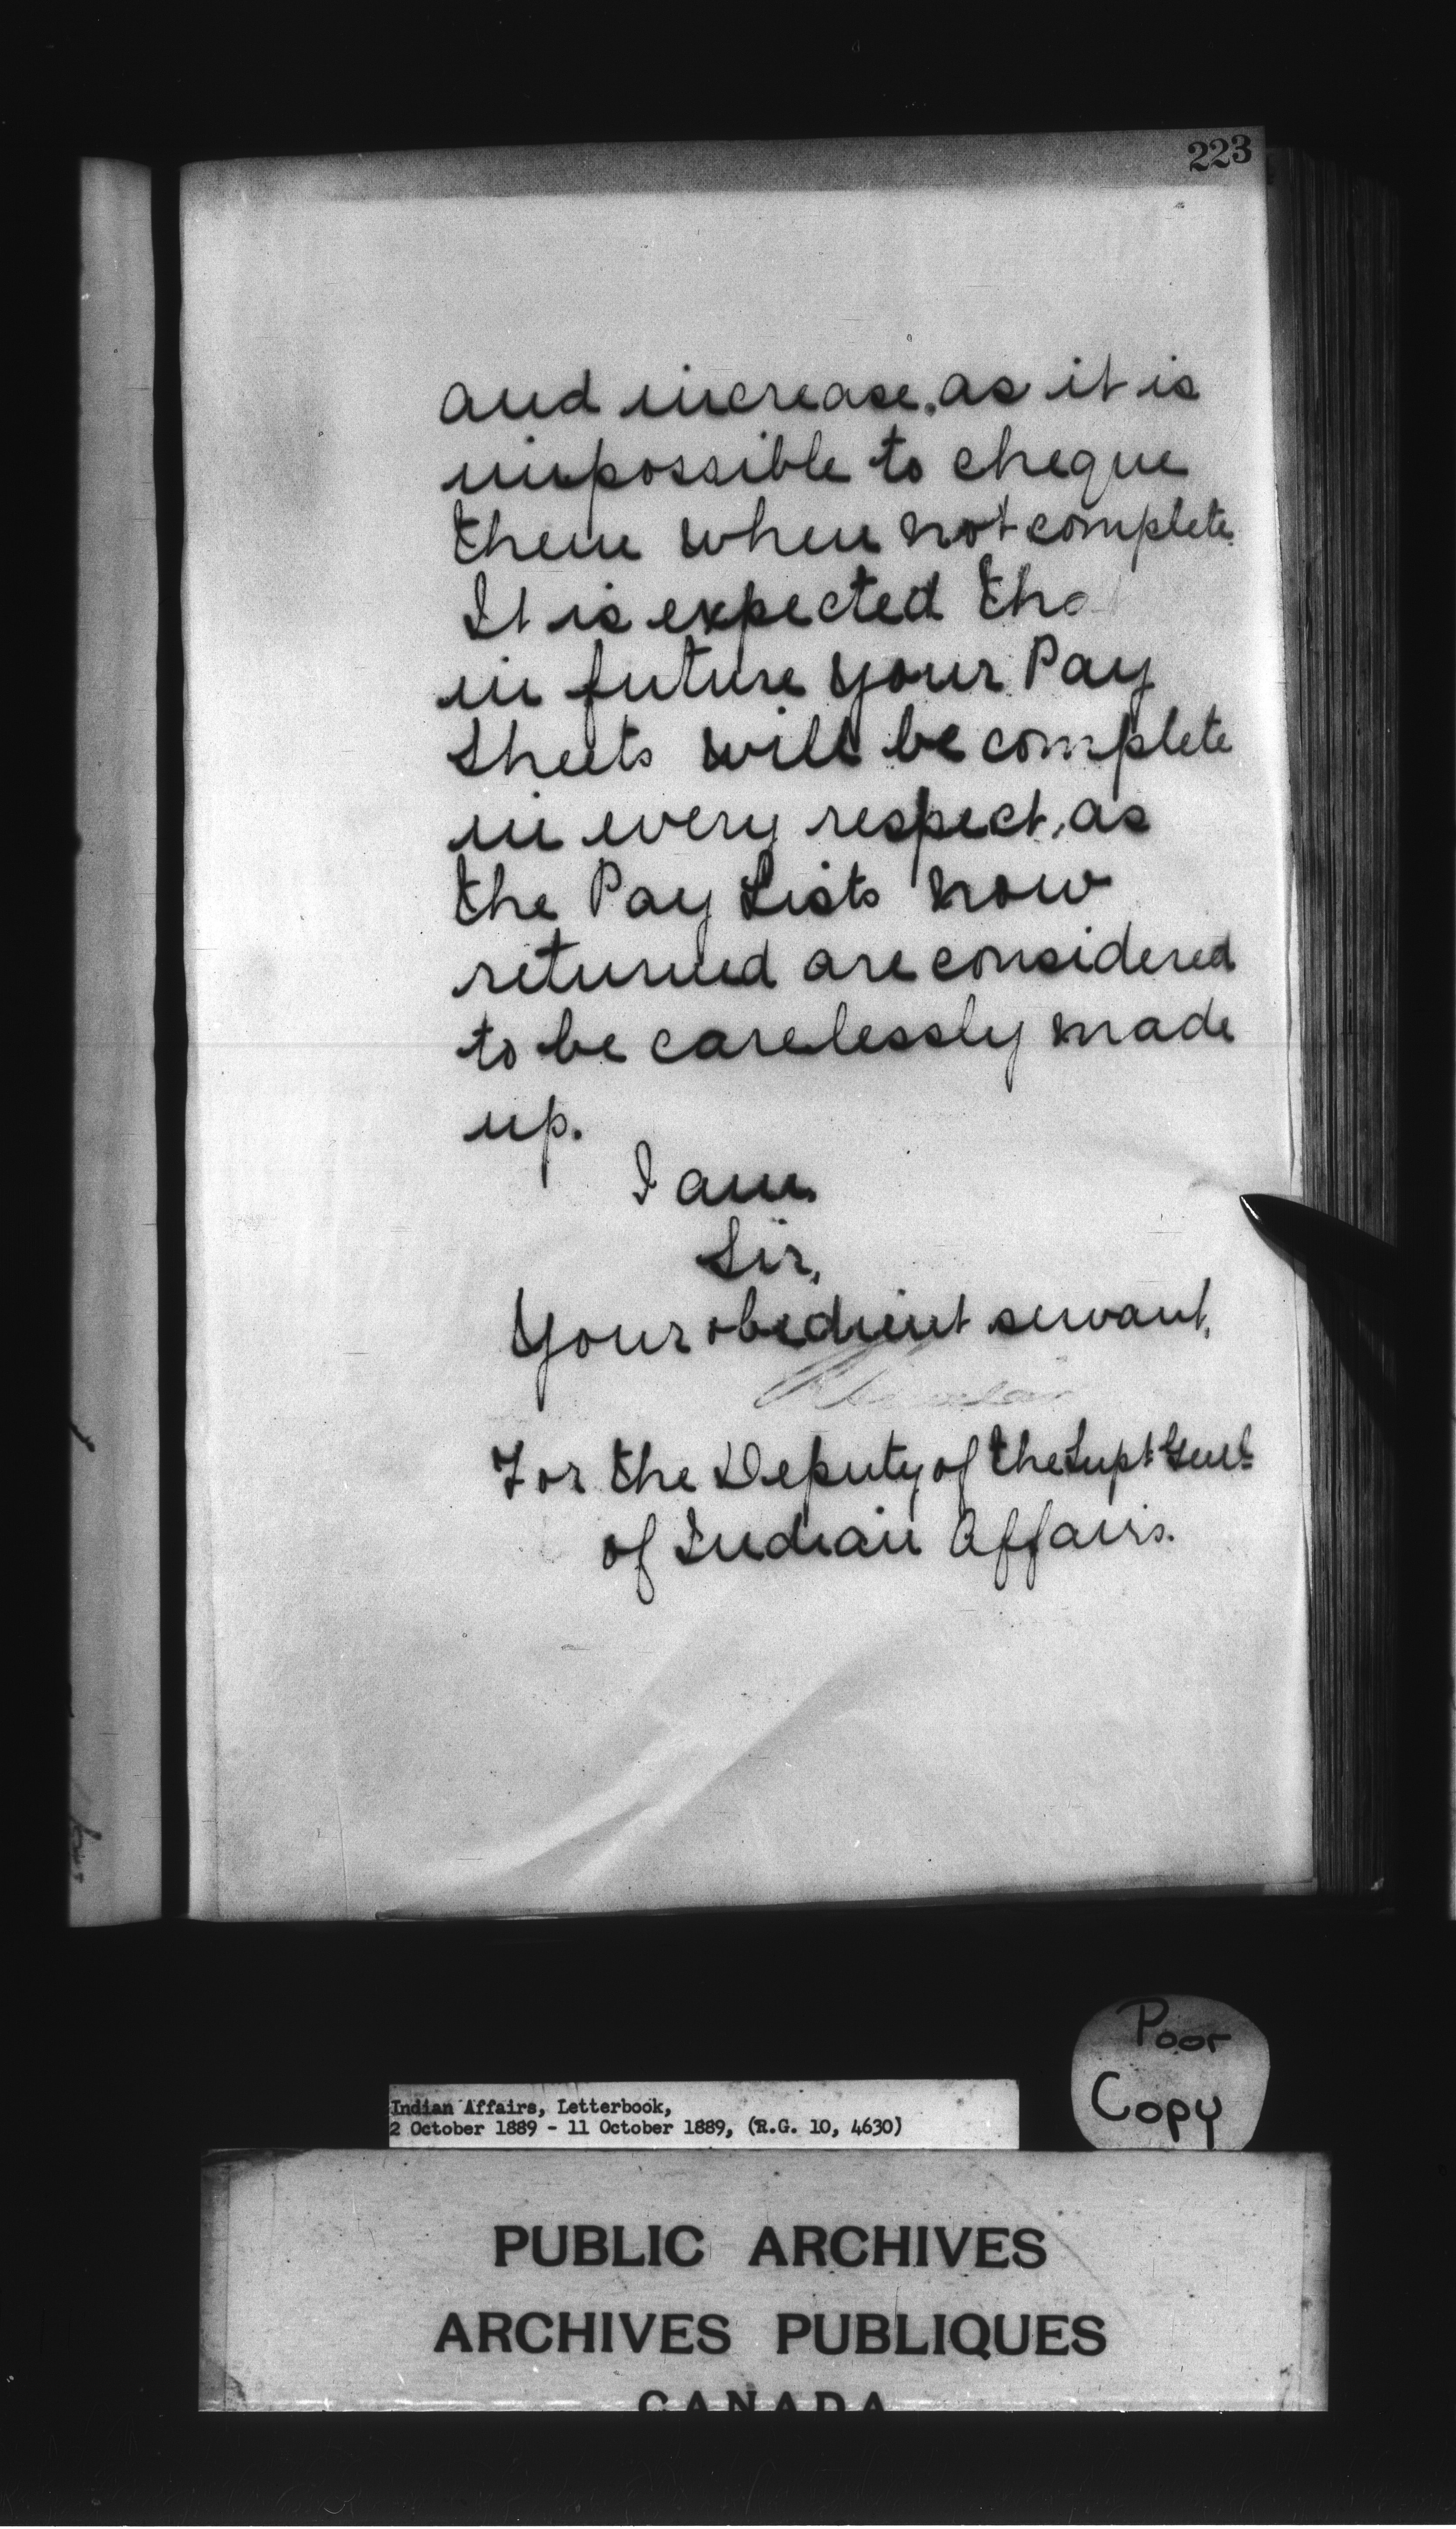 223
and increase, as it is
impossible to cheque
them when not complete.
It is expected tha
in future your Pay
Sheets will be complete
in every respect, as
the Pay Lists now
returned are considered
to be carelessly made
up.
I am,
Sir,
Your obedient servant,
For the Deputy of the Supt Genl
of Indian Affairs.
Poor
Copy
Indian Affairs, Letterbook,
2 October 1889 - 11 October 1889, (R.G. 10, 4630)
PUBLIC ARCHIVES
ARCHIVES PUBLIQUES
CANADA